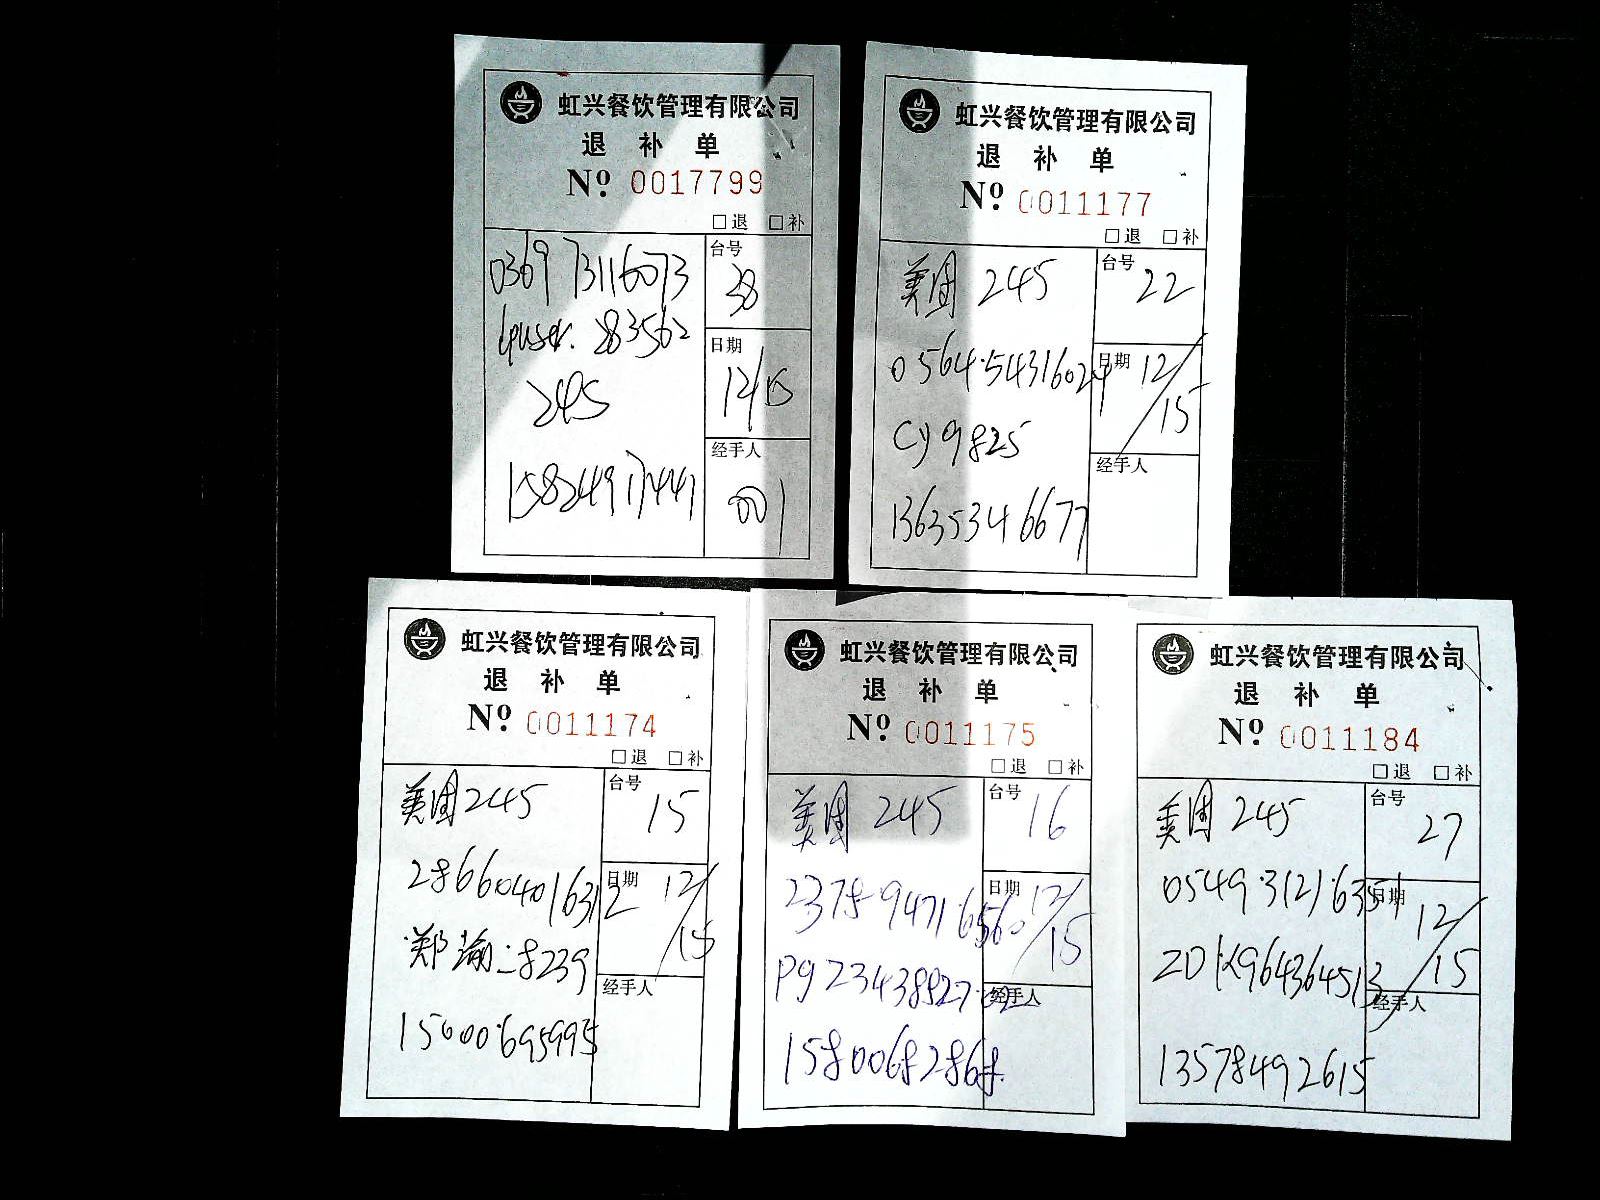 虹兴餐饮管理有限公司
退 补 单
Nº 0017799
□退 □补
0369 73116073
283562
245
15824917441
台号
38
日期
12/15
经手人
001
虹兴餐饮管理有限公司
退 补 单
Nº 0011177
□退 □补
美团 245
0564·54316024
cy9825
13635346677
台号
22
日期
12/15
经手人
虹兴餐饮管理有限公司
退 补 单
Nº 0011174
□退 □补
美团245
286604016312
郑瑜
15000695995
台号
15
日期
12/15
经手人
虹兴餐饮管理有限公司
退 补 单
Nº 0011175
□退 □补
美团 245
2378·9471·6560
15800682868
台号
16
日期
12/15
经手人
虹兴餐饮管理有限公司
退 补 单
Nº 0011184
□退 □补
美团 245
0549·3121·6351
13578492615
台号
27
日期
12/15
经手人